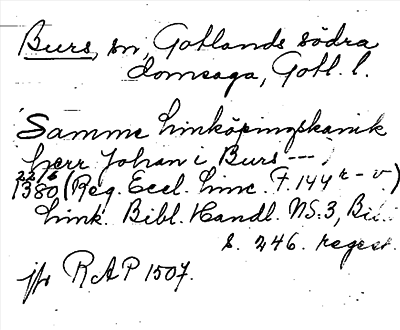 Burs, sn, Gotlands södra
domsaga, Gotl. l.
Samme linköpingskanik
herr Johan i Burs ---
22/6
1380 (Reg. Eccl. Linc. F. 144 r - v.)
Link. Bibl. Handl. NS:3,
s. 246. regest.
jfr RAP 1507.